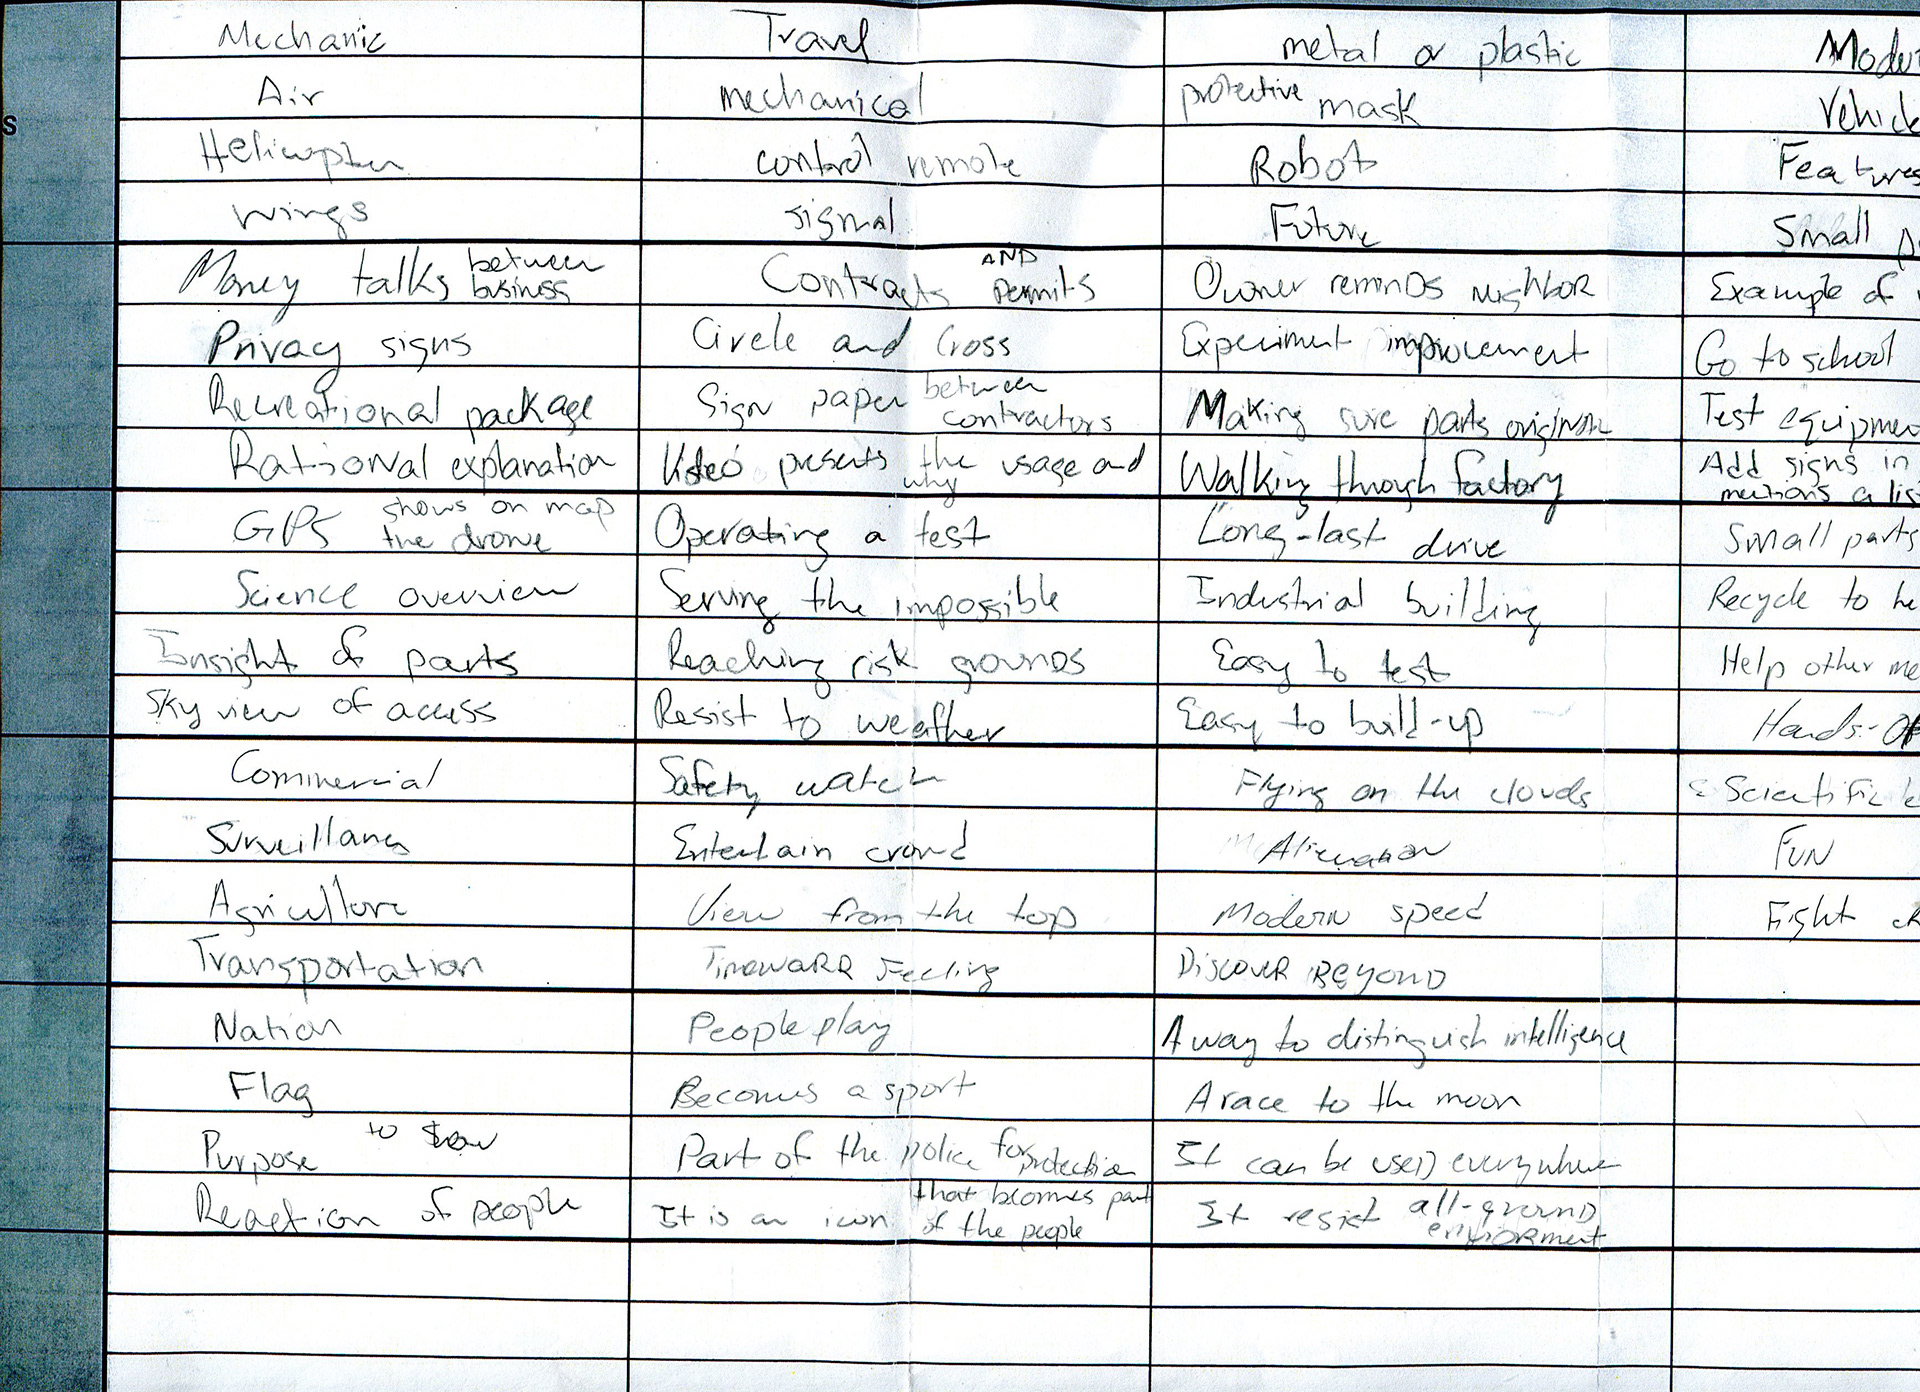 Mechanic Travel metal or plastic Moder
Air mechanical protective mask Vehicle
s
Helicopter control remote Robot Features
Wings signal Future Small
Money talks between business Contracts AND permits Owner reminds neighbor Example of
Privacy signs Circle and Cross Experiment improvement Go to school
Recreational package Sign paper between contractors Making sure parts original Test equipmen
Rational explanation Video presents the usage and why Walking through factory Add signs in mentions a lis
GPS shows on map the drone Operating a test Long-last drive Small parts
Science overview Serving the impossible Industrial building Recycle to he
Insight of parts Reaching risk grounds Easy to test Help other me
Sky view of access Resist to weather Easy to build-up Hands-O
Commercial Safety watch Flying on the clouds Scientific
Surveillance Entertain crowd Alienation FUN
Agriculture View from the top Modern speed Fight
Transportation Feeling DISCOVER BEYOND
Nation People play A way to distinguish intelligence
Flag Becomes a sport A race to the moon
Purpose to Part of the police for protection It can be used everywhere
Reaction of people It is an icon that becomes part of the people It resist all-ground enviorment